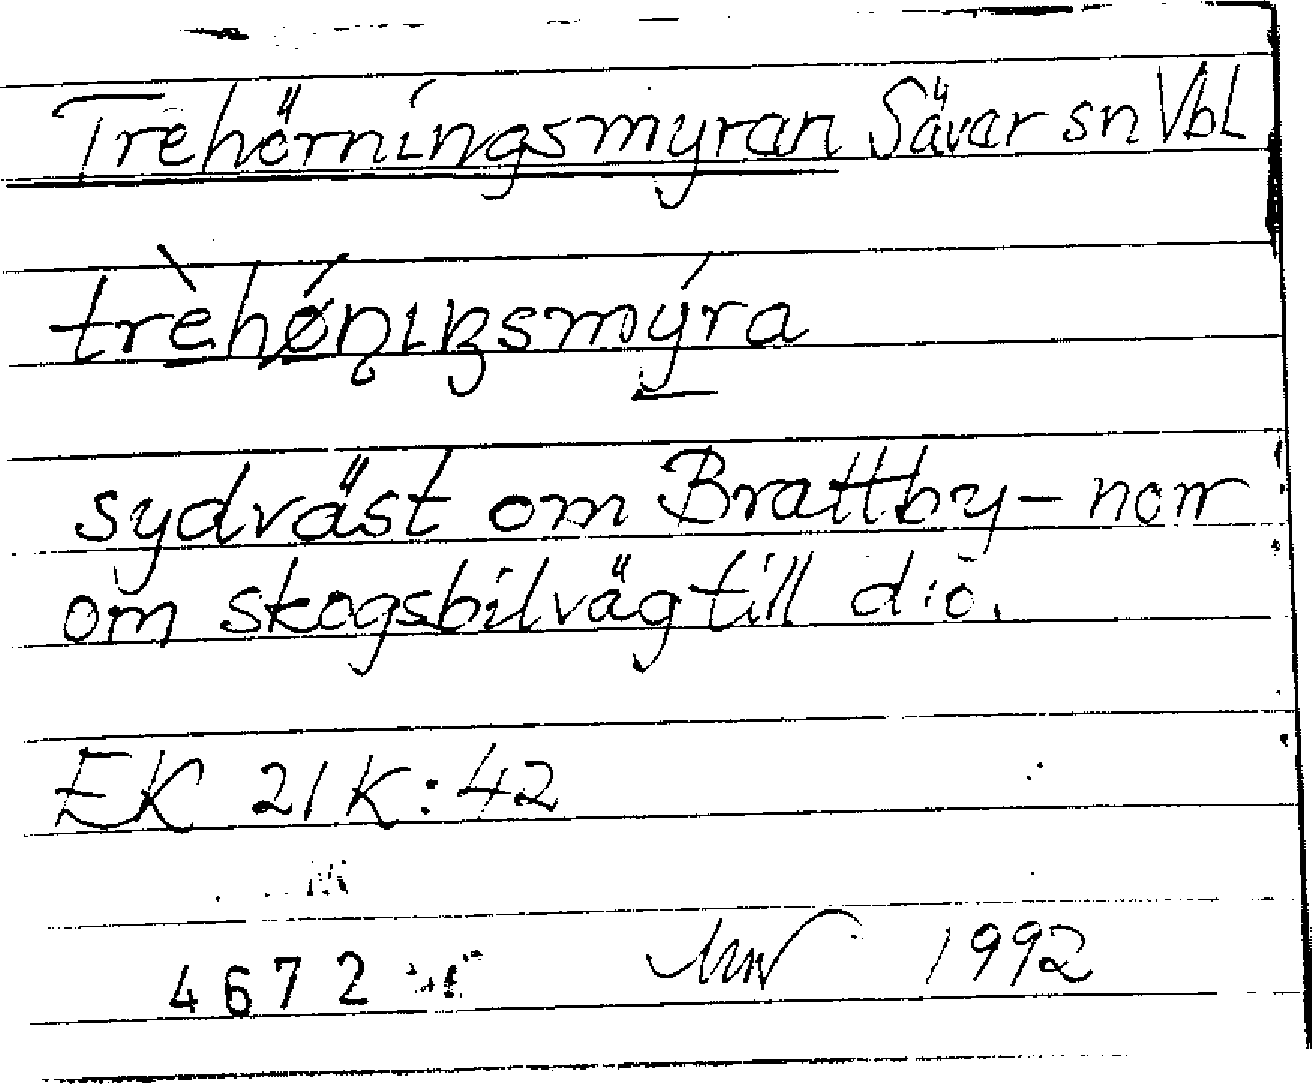 Trehörningsmyran Sävar sn Vbl
trèhǿṇıŋsmýra
sydväst om Brattby - norr
om skogsbilväg till d:o.
EK 21K:42
4672 1992